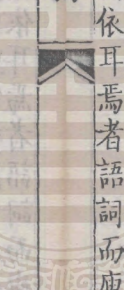 依耳焉者語詞而